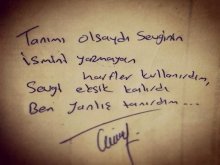 Tanımı olsaydı Sevginin
İsmini yazmayan
harfler kullanırdım,
Sevgi eksik kalırdı
Ben yanlış tanırdım...